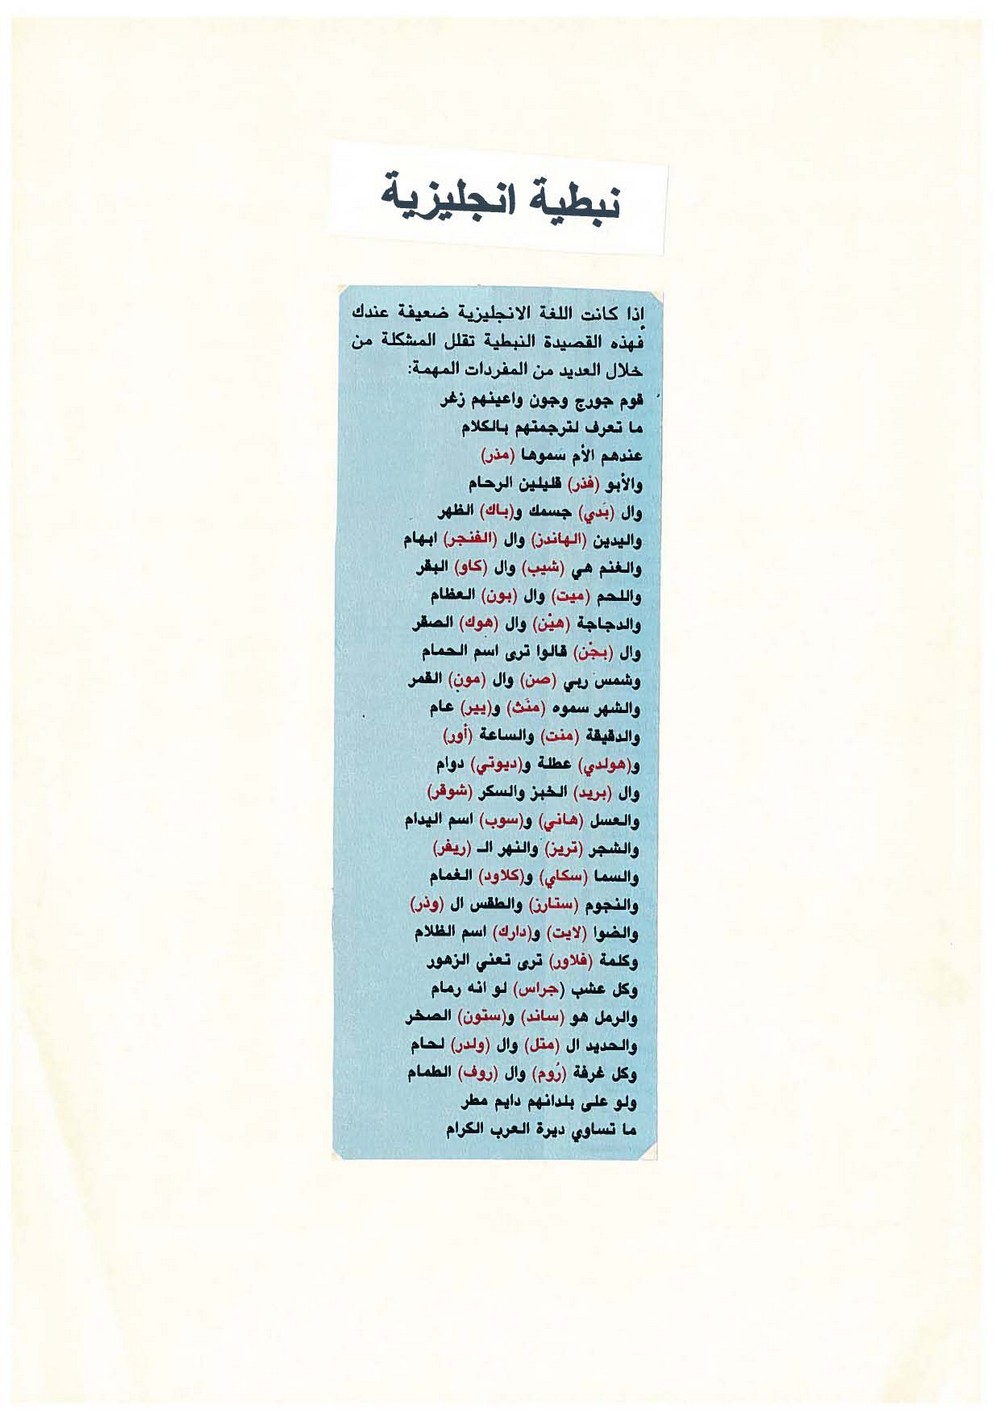 نبطية انجليزية
إذا كانت اللغة الانجليزية ضعيفة عندك
فهذه القصيدة النبطية تقلل المشكلة من
خلال العديد من المفردات المهمة:
قوم جورج وجون واعينهم زغر
ما تعرف لترجمتهم بالكلام
عندهم الأم سموها (مذر)
والأبو (فذر) قليلين الرحام
وال (بَدي) جسمك و(باك) الظهر
واليدين (الهاندز) وال (الفنجر) ابهام
والغنم هي (شيب) وال (كاو) البقر
واللحم (ميت) وال (بون) العظام
والدجاجة (هيْن) وال (هوك) الصقر
وال (بجْن) قالوا ترى اسم الحمام
وشمس ربي (صن) وال (مون) القمر
والشهر سموه (منَث) و(يير) عام
والدقيقة (منت) والساعة (أور)
و(هولدي) عطلة و(ديوتي) دوام
وال (بريد) الخبز والسكر (شوقر)
والعسل (هاني) و(سوب) اسم اليدام
والشجر (تريز) والنهر الـ (ريفر)
والسما (سكاي) و(كلاود) الغمام
والنجوم (ستارز) والطقس ال (وذر)
والضوا (لايت) و(دارك) اسم الظلام
وكلمة (فلاور) ترى تعني الزهور
وكل عشب (جراس) لو انه رمام
والرمل هو (ساند) و(ستون) الصخر
والحديد ال (متل) وال (ولدر) لحام
وكل غرفة (رُوم) وال (روف) الطمام
ولو على بلدانهم دايم مطر
ما تساوي ديرة العرب الكرام